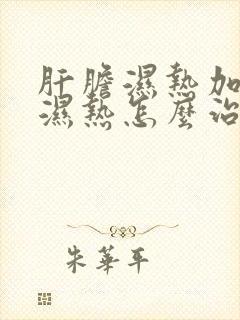 肝膽濕熱加
濕熱怎麼治
朱華平